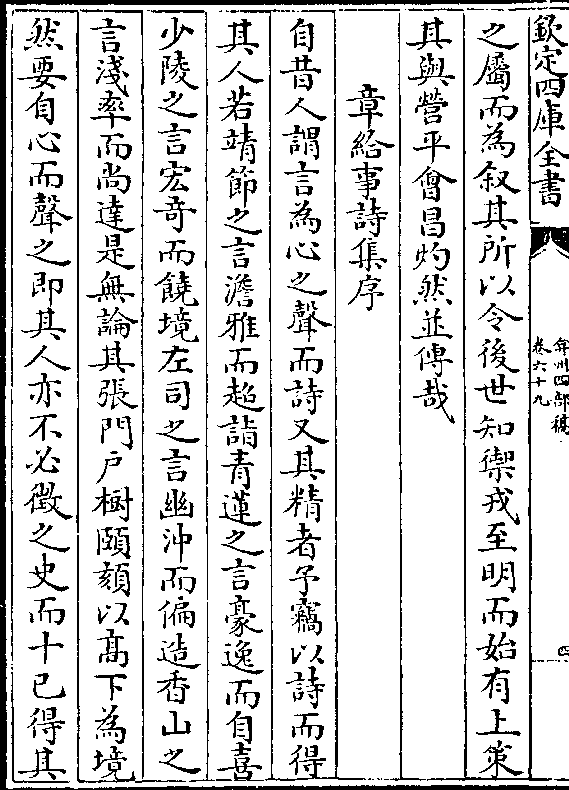 欽定四庫全書
弇州四部稿
卷六十九
四
之屬而為叙其所以令後世知禦戎至明而始有上策
其與營平會昌灼然並傳哉
章給事詩集序
自昔人謂言為心之聲而詩又其精者予竊以詩而得
其人若靖節之言澹雅而超詣青蓮之言豪逸而自喜
少陵之言宏奇而饒境左司之言幽沖而偏造香山之
言淺率而尚達是無論其張門户樹頤頦以髙下為境
然要自心而聲之即其人亦不必徵之史而十已得其